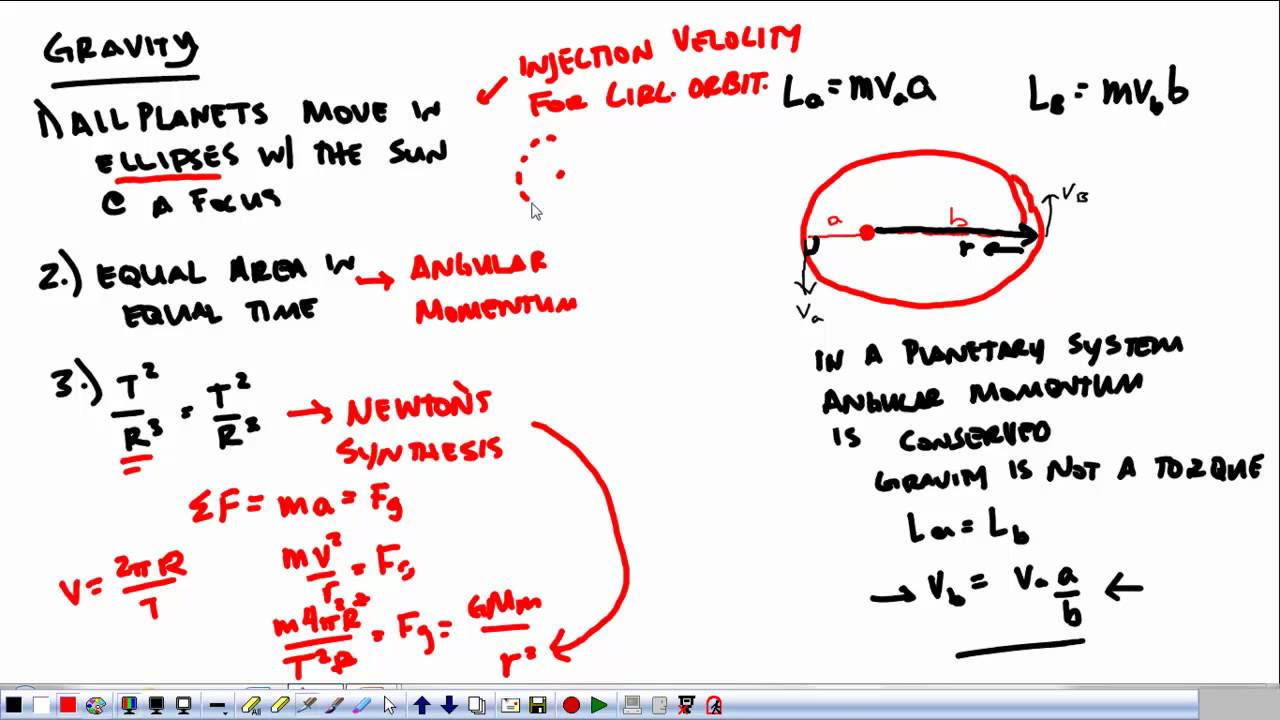 GRAVITY
1) ALL PLANETS MOVE IN
ELLIPSES W/ THE SUN
@ A FOCUS
INJECTION VELOCITY
FOR CIRC. ORBIT.
2.) EQUAL AREA IN
EQUAL TIME
→ ANGULAR
MOMENTUM
3.) T²/R³ = T²/R³
→ NEWTON'S
SYNTHESIS
ΣF = ma = Fg
V = 2πR/T
mv²/r = Fg
m4π²R²/T²R = Fg = GMm/r²
La = mvaa
LB = mvbb
a
b
r
VB
Va
IN A PLANETARY SYSTEM
ANGULAR MOMENTUM
IS CONSERVED
GRAVITY IS NOT A TORQUE
La = Lb
→ Vb = Va a/b ←
All